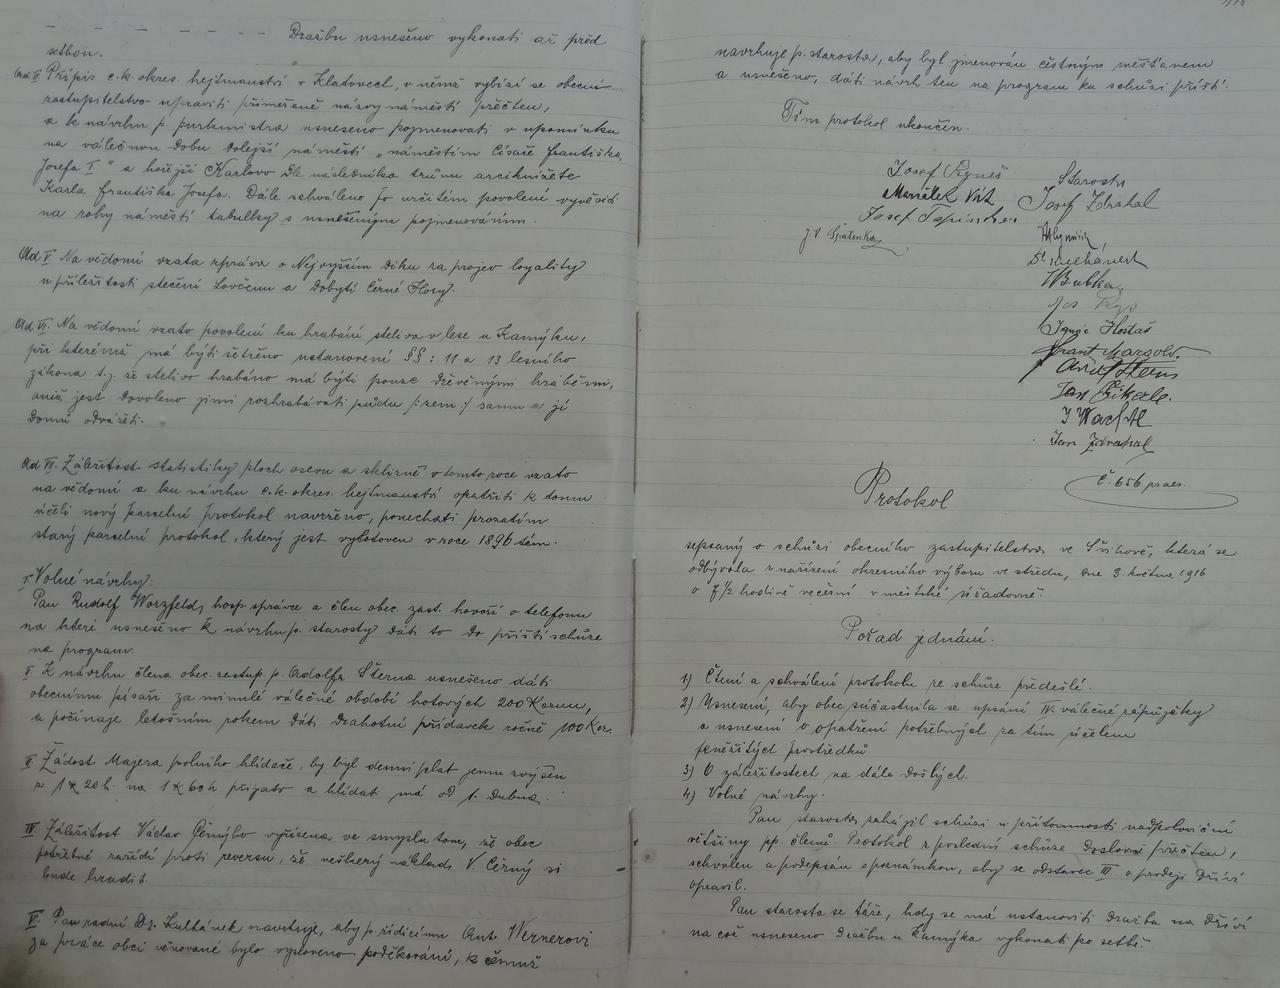 Dražbu usnešeno vykonati až před
setbou.
Ad IV. Přípis c.k. okres. hejtmanství v Klatovech, v němž vybízí se obecní
zastupitelstvo upraviti přiměřeně názvy náměstí přečten,
a k návrhu p. purkmistra usneseno pojmenovati v upomínku
na válečnou dobu dolejší náměstí „náměstím Císaře Františka
Josefa I" a hořejší Karlovo dle následníka trůnu arciknížete
Karla Františka Josefa. Dále schváleno po určitém povolení vyvěsiti
na rohy náměstí tabulky s usneseným pojmenováním.
Ad V. Na vědomí vzata zpráva o Nejvyšším díku za projev loyality
u příležitosti stečení Lovcenu a dobytí Černé Hory.
Ad VI. Na vědomí vzato povolení ku hrabání steliva v lese u Kamýku,
při kterémž má býti šetřeno ustanovení §§: 11 a 13 lesního
zákona t.j. že stelivo hrabáno má býti pouze dřevěnými hráběmi,
aniž jest dovoleno jimi rozhrabávati půdu /:zem:/ samu a ji
domů odvážeti.
Ad VII. Záležitost statistiky ploch osevu a sklizně v tomto roce vzato
na vědomí a ku návrhu c.k. okres. hejtmanství opatřiti k tomu
účeli nový parcelní protokol navrženo, ponechati prozatím
starý parcelní protokol, který jest vyhotoven v roce 1896 tém.
I. Volné návrhy:
Pan Rudolf Worzfeld, hosp. správce a člen obec. zast. hovoří o telefonu
na které usneseno k návrhu p. starosty dáti to do příští schůze
na program.
II. K návrhu člena obec. zastup. p. Adolfa Šterna usneseno dáti
obecnímu písaři za minulé válečné období hotových 200 Korun,
a počínaje letošním rokem dáti drahotní přídavek ročně 100 Kor.
III. Žádost Majera polního hlídače, by byl denní plat jemu zvýšen
z 1 K 20 h. na 1 K 60 h přijato a hlídat má od 1. dubna.
IV. Záležitost Václav Černýho vyřízena ve smyslu tom, že obec
potřebné zařídí proti reversu, že veškerý náklad V. Černý si
bude hradit.
V. Pan radní Dr. Kulhánek navrhuje, aby p. řídicímu Ant. Wernerovi
za práce obci věnované bylo vysloveno poděkování, k čemuž
navrhuje p. starosta, aby byl jmenován čestným měšťanem
a usneseno, dáti návrh ten na program ku schůzi příští.
Tím protokol ukončen.
Starosta
Josef Zdrahal
Josef
Mareček Vát
Josef
J. V. Špatenka
Dr. Kulhánek
Bubka
Jos.
Ignác Hostaš
Frant. Margold.
Adolf Stern
Jan Cikale.
J Wachtl
Jan Zdrahal
č. 656 praes.
Protokol
sepsaný o schůzi obecního zastupitelstva ve Švihově, která se
odbývala z nařízení okresního výboru ve středu, dne 3. května 1916
o 7 1/2 hodině večerní v městské úřadovně.
Pořad jednání.
1) Čtení a schválení protokolu ze schůze předešlé.
2) Usnesení, aby obec súčastnila se upsání IV. válečné zápůjčky
a usnesení o opatření potřebných za tím účelem
peněžitých prostředků.
3) O záležitostech na dále došlých.
4) Volné návrhy.
Pan starosta zahájil schůzi u přítomnosti nadpoloviční
většiny pp. členů. Protokol z poslední schůze doslova přečten,
schválen a podepsán s poznámkou, aby se odstavec III o prodeji dříví
opravil.
Pan starosta se táže, kdy se má ustanoviti dražba na dříví
na což usneseno dražbu u Kamýka vykonati po setbě.